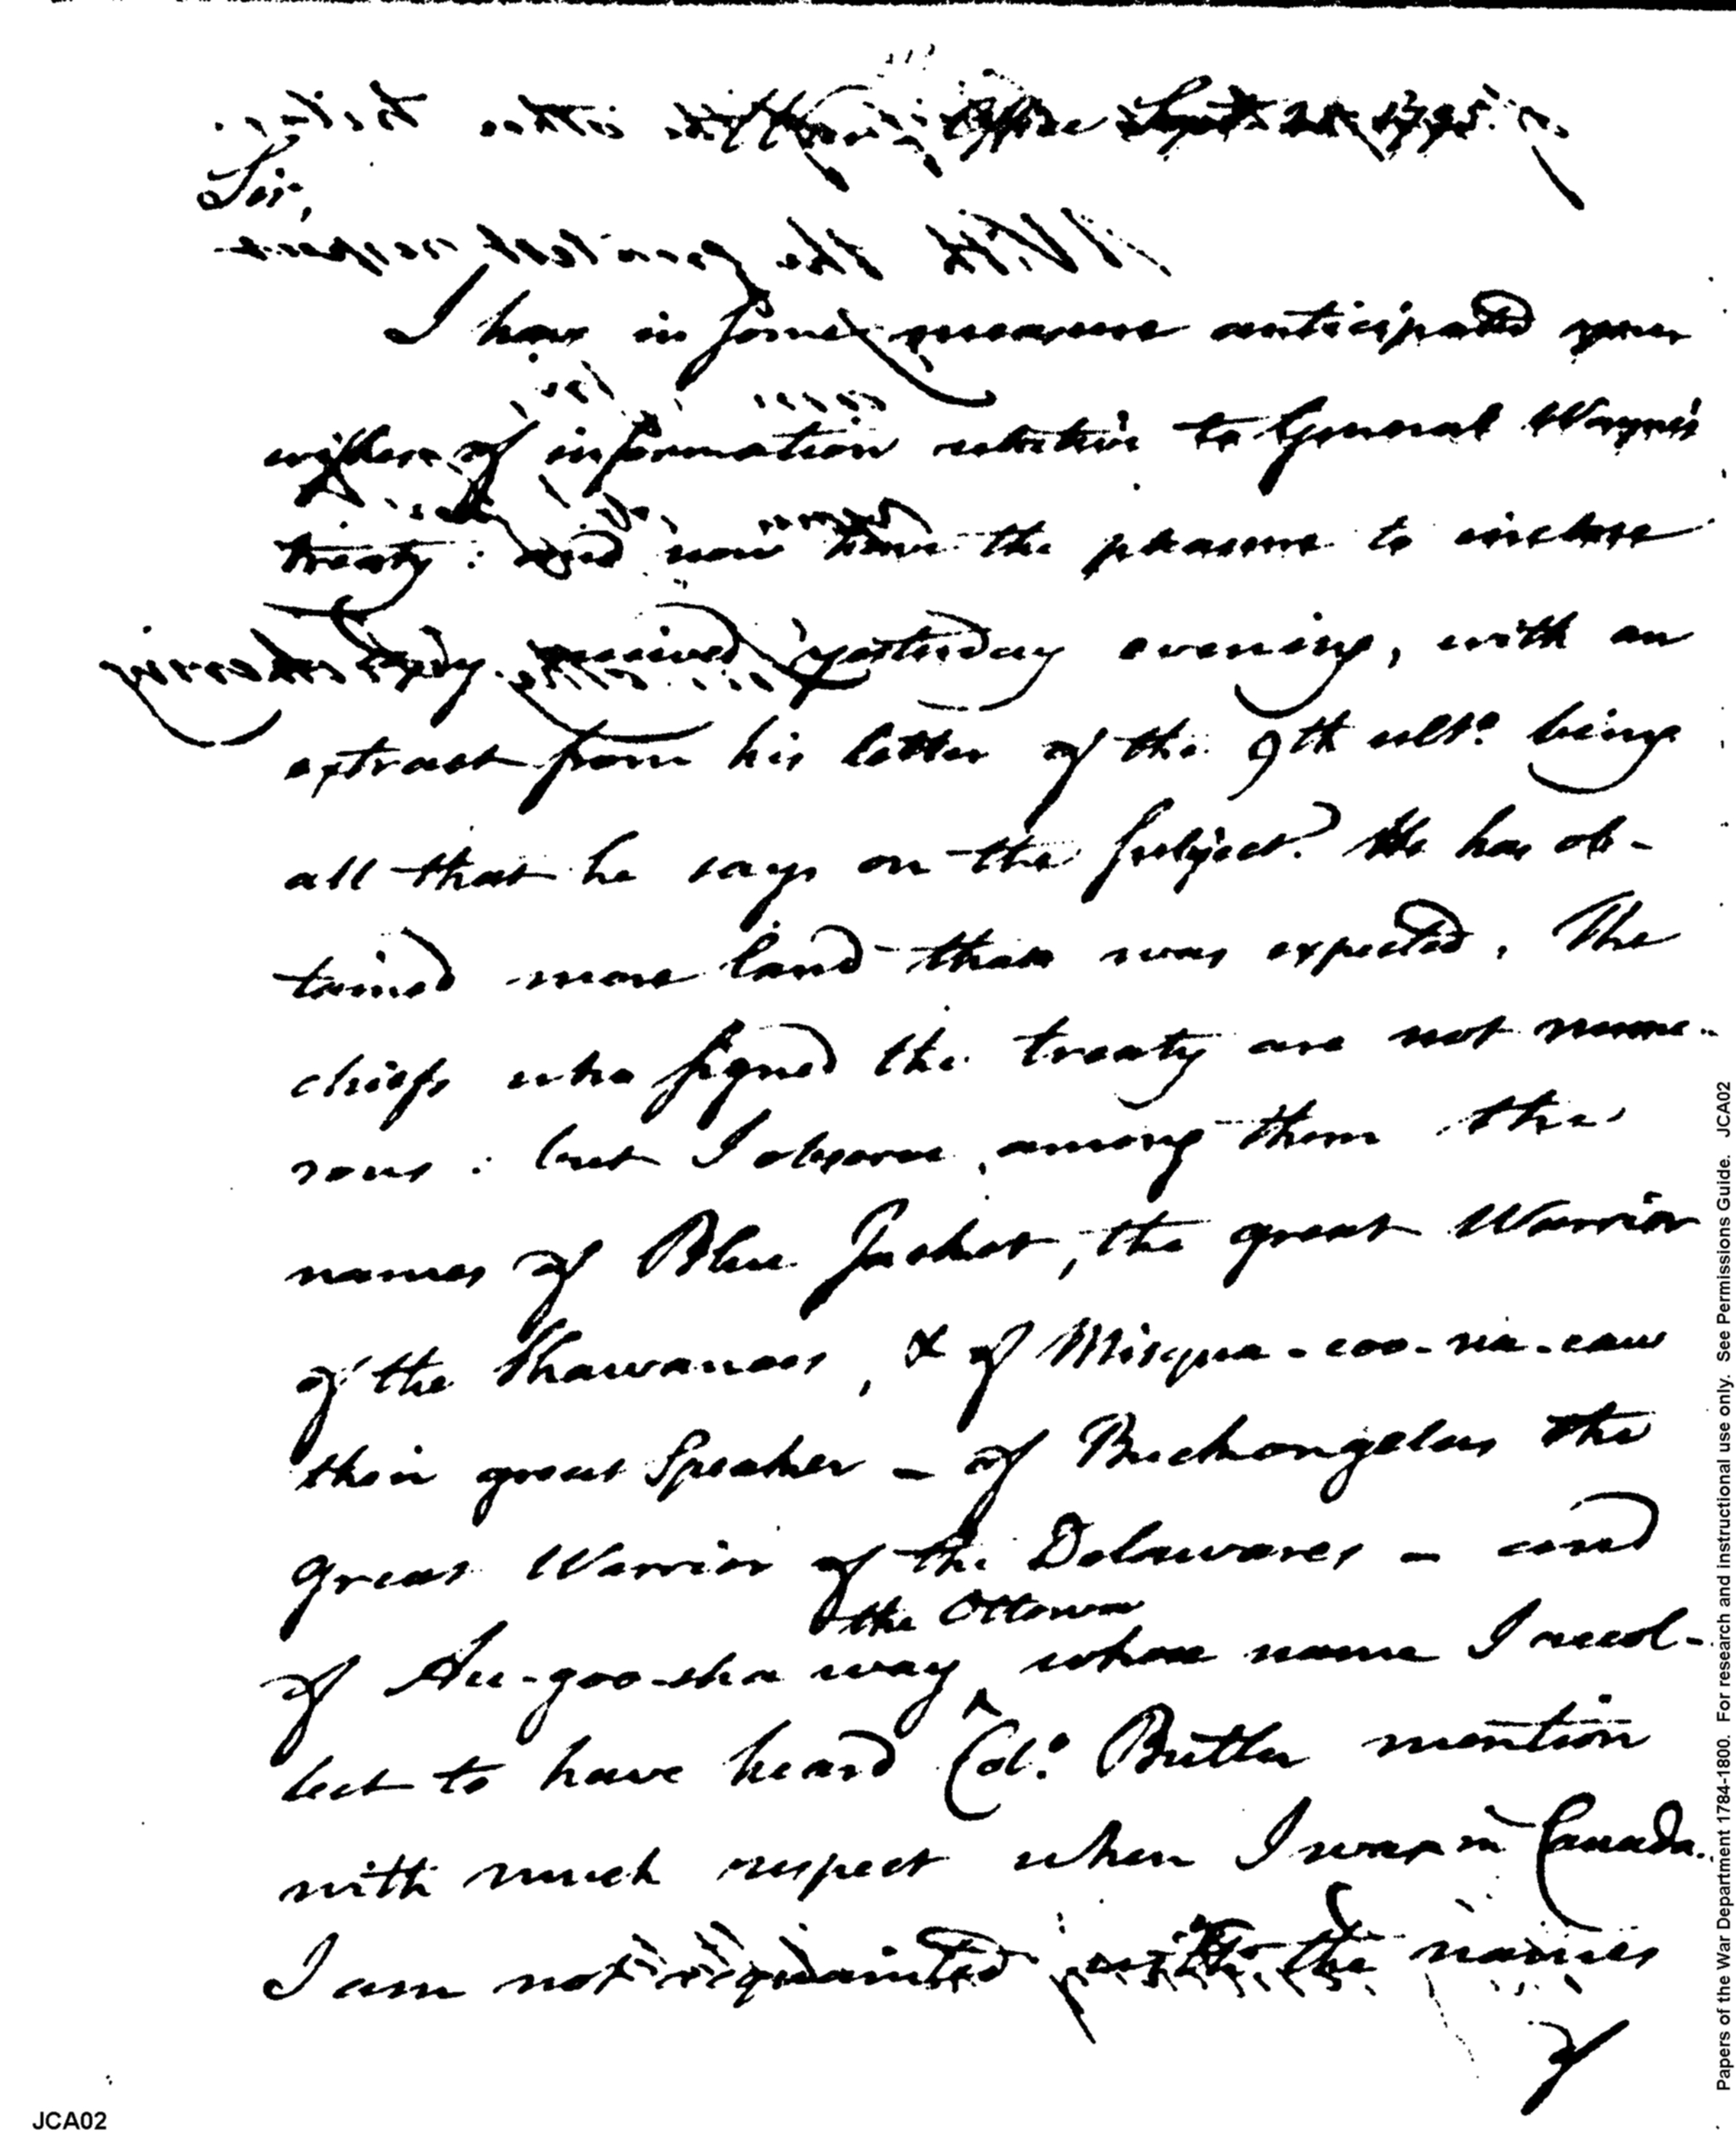 Office Sept. 1795.
Sir,
I have in some measure anticipated your
wishes of information relative to General Wayne's
treaty: and now have the pleasure to inclose
copy received yesterday evening, with an
extract from his letter of the 9th ulto. being
all that he says on the subject. He has ob-
tained more land than was expected. The
chiefs who signed the treaty are not nume-
rous: but I observe among them the
names of Blue Jacket, the great Warrior
of the Shawanoes, & of Misqua-coo-na-caw
their great Speaker – of Buckongelas the
great Warrior of the Delawares – and
the Ottowa
of Au-goo-sha way ^ whose name I recol-
lect to have heard Colo. Butler mention
with much respect when I was in Canada.
I am not acquainted with the names
of
Papers of the War Department 1784-1800. For research and instructional use only. See Permissions Guide. JCA02
JCA02